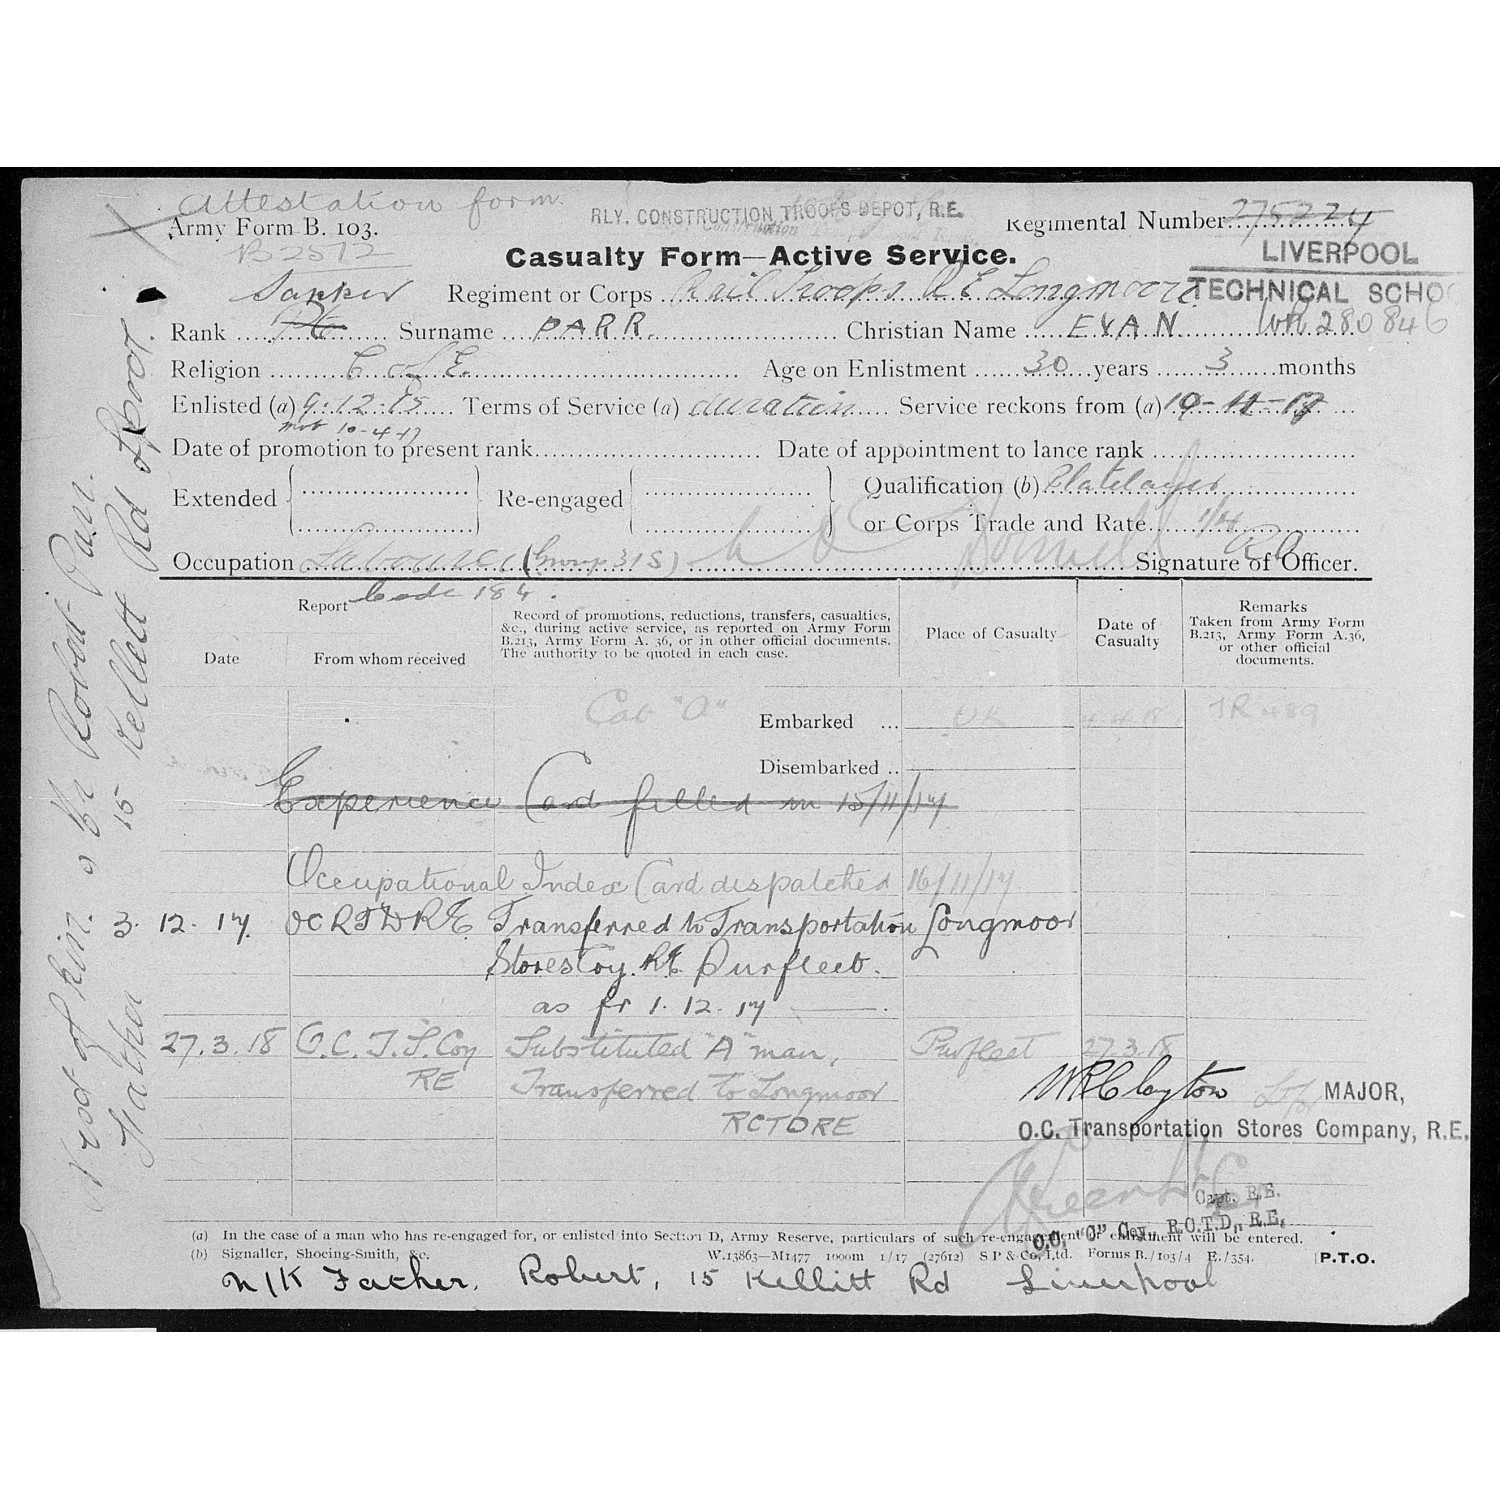 Attestation form.
RLY. CONSTRUCTION TROOPS DEPOT, R.E.
Army Form B. 103.
Regimental Number 275224
B2572
LIVERPOOL
Casualty Form—Active Service.
TECHNICAL SCHO
Sapper Regiment or Corps Rail Troops R E Longmoor
WR 280846
Rank Pte Surname PARR. Christian Name EVAN
Religion C of E. Age on Enlistment 30 years 3 months
Enlisted (a) 9-12-15 Terms of Service (a) duration Service reckons from (a)
mob 10-4-17
Date of promotion to present rank Date of appointment to lance rank
Extended Re-engaged Qualification (b) Platelayer
or Corps Trade and Rate 1/4
Occupation Labourer (Group 31S) Signature of Officer.
Code 184.
Report
Date
From whom received
Record of promotions, reductions, transfers, casualties, &c., during active service, as reported on Army Form B.213, Army Form A. 36, or in other official documents. The authority to be quoted in each case.
Place of Casualty
Date of Casualty
Remarks
Taken from Army Form B.213, Army Form A.36, or other official documents.
Cat "A" Embarked ... UK 4 4 18 TR 489
Disembarked ..
Experience Card filled in 15/11/17
Occupational Index Card dispatched 16/11/17
3. 12. 17. OC RTDRE Transferred to Transportation Longmoor
Stores Coy. RE Purfleet.
as fr 1. 12. 17
27.3.18 O.C. T.S. Coy Substituted "A" man, Purfleet 27.3.18
RE Transferred to Longmoor
RCTDRE
WRClayton MAJOR,
O.C. Transportation Stores Company, R.E.
Capt. R.E.
O.C. "C" Coy., R.C.T.D., R.E.
(a) In the case of a man who has re-engaged for, or enlisted into Section D, Army Reserve, particulars of such re-engagement or enlistment will be entered.
(b) Signaller, Shoeing-Smith, &c. W.13863—M1477 1000m 1/17 (27612) S P & Co., Ltd. Forms B./103/4 E./354. P.T.O.
N/K Father. Robert, 15 Kellitt Rd Liverpool
Next of kin. Robert Parr.
Father 15 Kellett Rd L'pool.